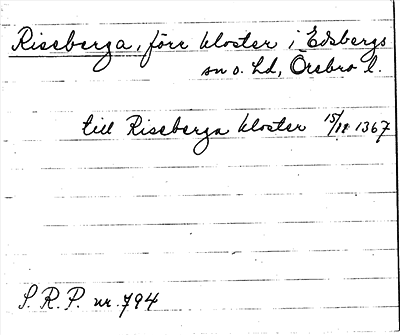 Riseberga, förr kloster i Edsbergs
sn o. hd, Örebro l.
till Riseberga kloster 15/12 1367
S. R. P. nr. 794